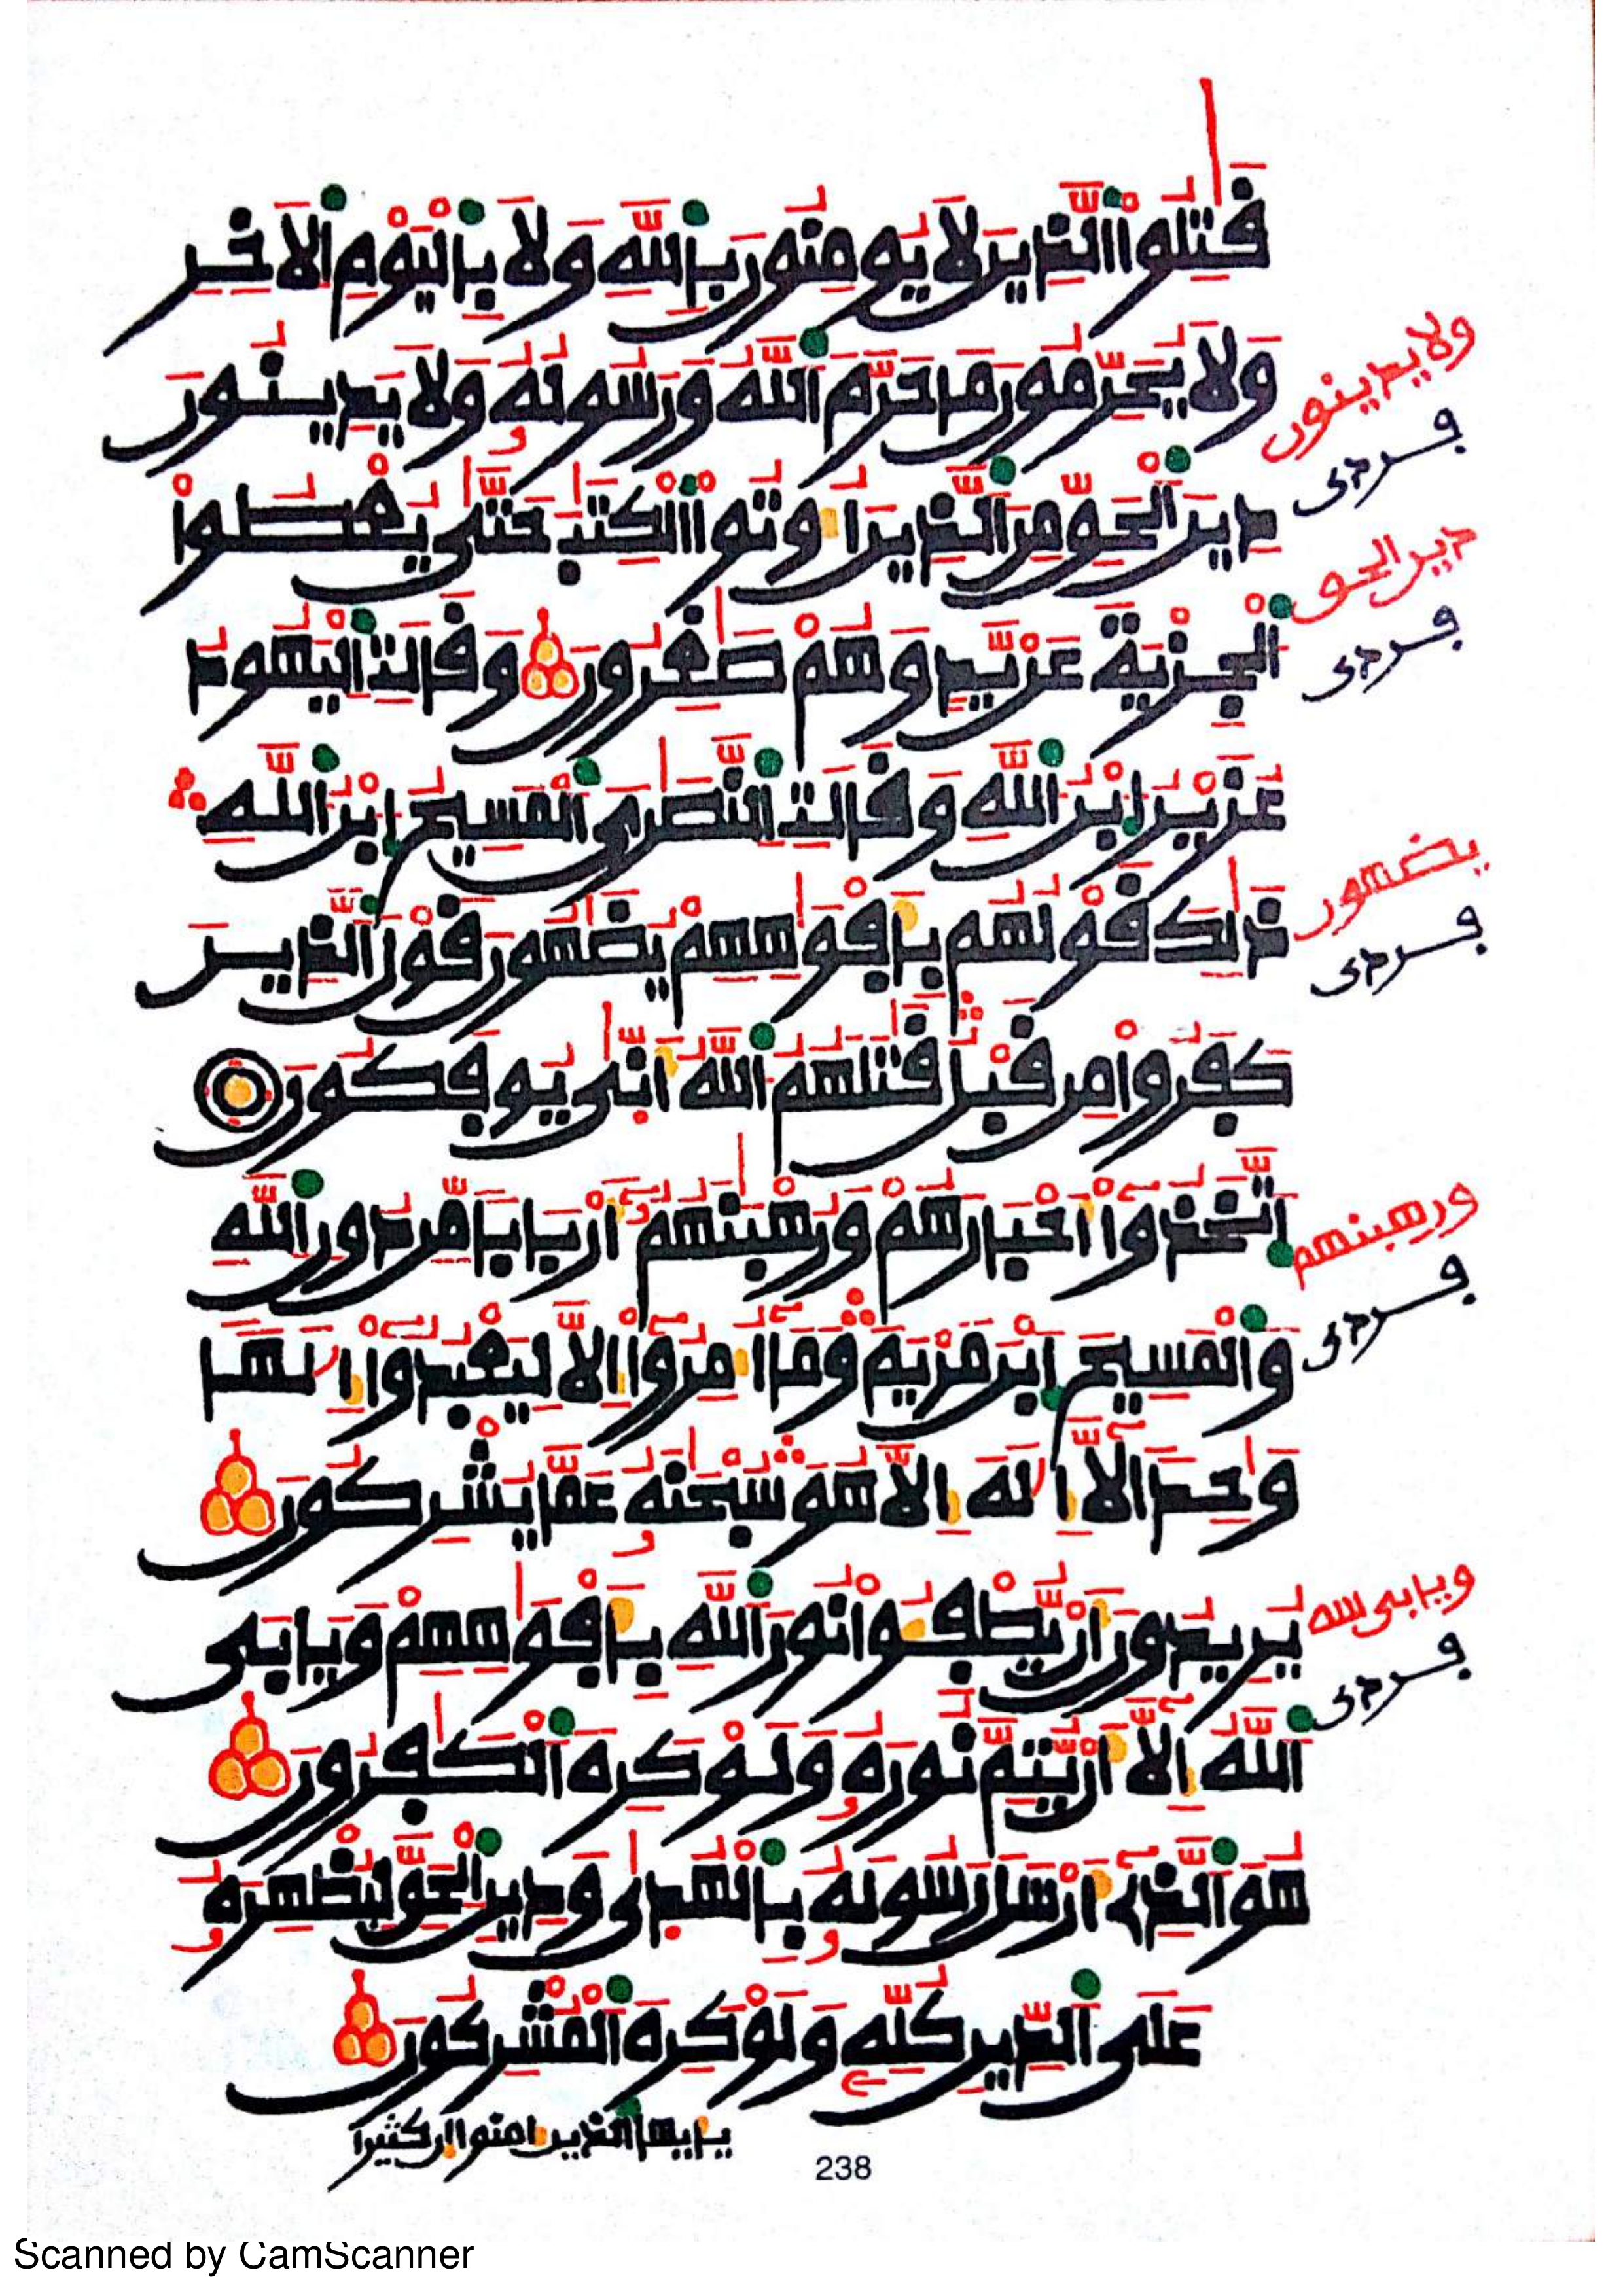 قَٰتِلُوا۟ الذِينَ لَا يُومِنُونَ بِاللَّهِ وَلَا بِالْيَوْمِ الَاخِرِ
وَلَا يُحَرِّمُونَ مَا حَرَّمَ اللَّهُ وَرَسُولُهُۥ وَلَا يَدِينُونَ
دِينَ الْحَقِّ مِنَ الَّذِينَ أُوتُوا۟ الْكِتَٰبَ حَتَّىٰ يُعْطُوا۟
الْجِزْيَةَ عَنْ يَّدٍ وَهُمْ صَٰغِرُونَ وَقَالَتِ الْيَهُودُ
عُزَيْرُ ابْنُ اللَّهِ وَقَالَتِ النَّصَٰرَى الْمَسِيحُ ابْنُ اللَّهِ
ذَٰلِكَ قَوْلُهُم بِأَفْوَٰهِهِمْ يُضَٰهُونَ قَوْلَ الَّذِينَ
كَفَرُوا۟ مِن قَبْلُ قَٰتَلَهُمُ اللَّهُ أَنَّىٰ يُوفَكُونَ
اتَّخَذُوا۟ أَحْبَارَهُمْ وَرُهْبَٰنَهُمْ أَرْبَابًا مِّن دُونِ اللَّهِ
وَالْمَسِيحَ ابْنَ مَرْيَمَ وَمَا أُمِرُوا۟ إِلَّا لِيَعْبُدُوا۟ إِلَٰهًا
وَٰحِدًا لَّا إِلَٰهَ إِلَّا هُوَ سُبْحَٰنَهُۥ عَمَّا يُشْرِكُونَ
يُرِيدُونَ أَنْ يُّطْفِـُٔوا۟ نُورَ اللَّهِ بِأَفْوَٰهِهِمْ وَيَابَى
اللَّهُ إِلَّا أَنْ يُّتِمَّ نُورَهُۥ وَلَوْ كَرِهَ الْكَٰفِرُونَ
هُوَ الَّذِي أَرْسَلَ رَسُولَهُۥ بِالْهُدَىٰ وَدِينِ الْحَقِّ لِيُظْهِرَهُۥ
عَلَى الدِّينِ كُلِّهِۦ وَلَوْ كَرِهَ الْمُشْرِكُونَ
يأيها الذين امنوا إن كثيرا
238
ولا يدينون
دين الحق
يضهون
ورهبنهم
ويابى
Scanned by CamScanner